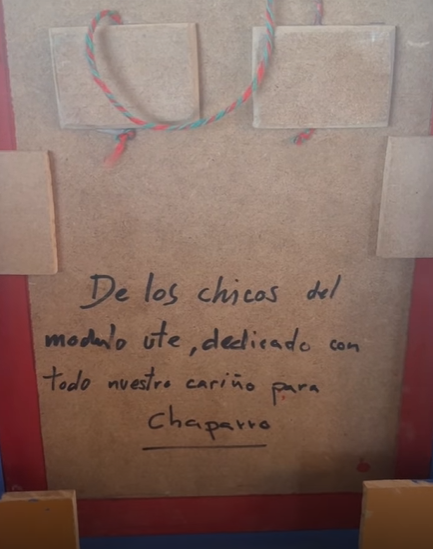 De los chicos del
modulo ute, dedicado con
todo nuestro cariño para
Chaparro